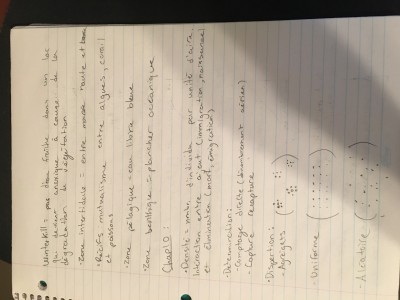 Winterkill = pas d'eau fraîche dans un lac
qui devient anoxique à cause de la
dégradation de la végétation
• Zone intertidale = entre marée haute et basse
• Récifs = mutualisme entre algues, corail
et poissons
• Zone pélagique = eau libre bleue
• Zone benthique = plancher océanique
Chap 10:
• Densité = nmbr. d'individu par unité d'aire
Interaction entre ajout (immigration, naissance)
et élimination (mort, émigration)
• Détermination:
- Comptage direct (dénombrement aérien)
- Capture recapture
• Dispersion:
- Agrégats
- Uniforme
- Aléatoire